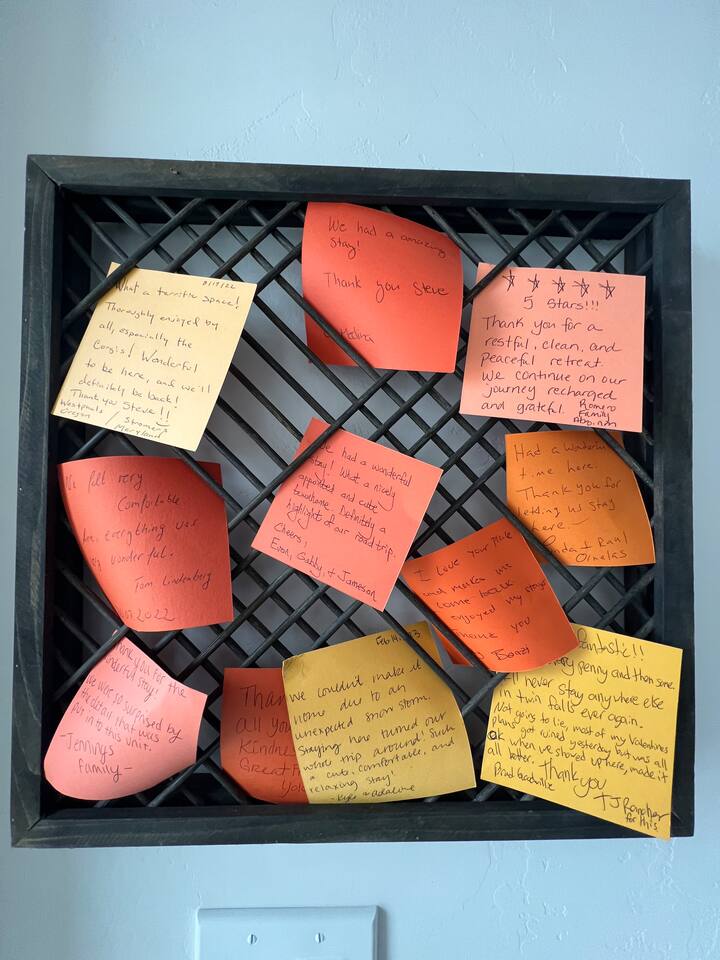 We had a amazing
Stay!
Thank you Steve
Medina
8/19/22
What a terrific space!
Thoroughly enjoyed by
all, especially the
Corgis! Wonderful
to be here, and we'll
definitely be back!
Thank you Steve!!
Oregon / Maryland
5 Stars!!!
Thank you for a
restful, clean, and
peaceful retreat.
We continue on our
journey recharged
and grateful.
Romero
Family
We had a wonderful
stay! What a nicely
appointed and cute
townhome. Definitely a
highlight of our road trip.
Cheers,
Evan, Gabby, + Jameson
Had a wonderful
time here.
Thank you for
letting us stay
here.
+ Raul
Ornelas
We felt very
Comfortable
here, everything was
wonderful.
Tom Lindenberg
2022
I Love your place
and makes me
come back
enjoyed my stay
Thank you
Thank you for the
wonderful stay!
We were so surprised by
the detail that was
put in to this unit.
-Jennings
Family-
Than
all you
Kindne
Great
Feb 14, 2023
We couldn't make it
home due to an
unexpected snow storm.
Staying here turned our
whole trip around! Such
a cute, comfortable, and
relaxing stay!
- Kyle + Adaline
Fantastic!!
penny and then some.
I'll never stay anywhere else
in twin falls ever again.
Not going to lie, most of my Valentines
plans got ruined yesterday but was all
ok when we showed up here, made it
all better. Thank you
for this